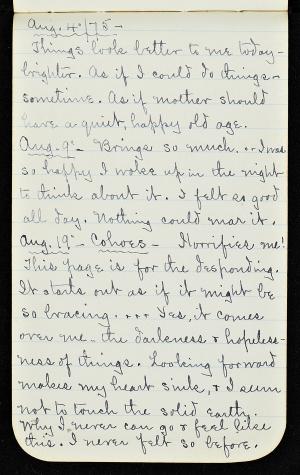 Aug. 4'/75 –
Things look better to me today –
brighter. As if I could do things –
sometime. As if mother should
have a quiet, happy old age.
Aug. 9' – Brings so much. .. I was
so happy I woke up in the night
to think about it. I felt so good
all day. Nothing could mar it.
Aug. 19' – Cohoes – Horrifies me!
This page is for the desponding.
It starts out as if it might be
so bracing. ... Yes, it comes
over me – the darkness & hopeless-
ness of things. Looking forward
makes my heart sink, & I seem
not to touch the solid earth.
Why I never can go & feel like
this. I never felt so before.